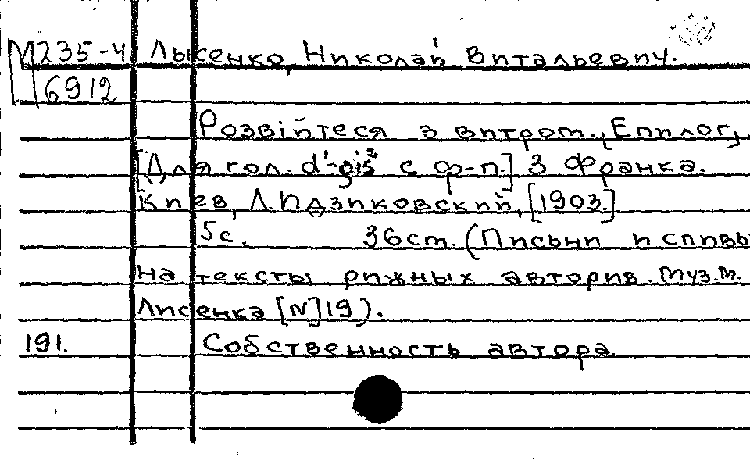 М235-4 Лысенко, Николай Витальевич.
6912
Розвiйтеся з витром. [Епилог],
[Для гол. d'-gis² с ф-п.] З Франка.
Киев, Л. Идзиковский, [1903]
5с. 36ст. (Письни и спивы
на тексты рижных авторив. муз. М.
Лисенка [N]19).
191. Собственность автора.